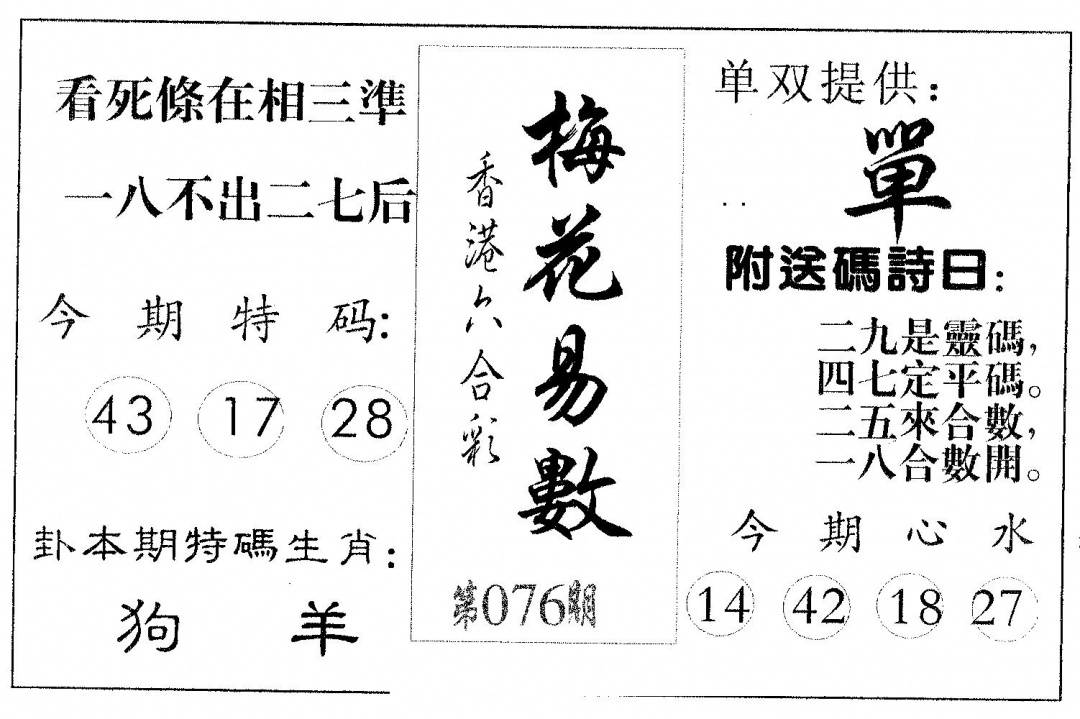 看死條在相三準
一八不出二七后
今期特码:
43 17 28
卦本期特碼生肖:
狗 羊
梅花易數
香港六合彩
第076期
单双提供:
單
附送碼詩曰:
二九是靈碼,
四七定平碼。
二五來合數,
一八合數開。
今期心水
14 42 18 27